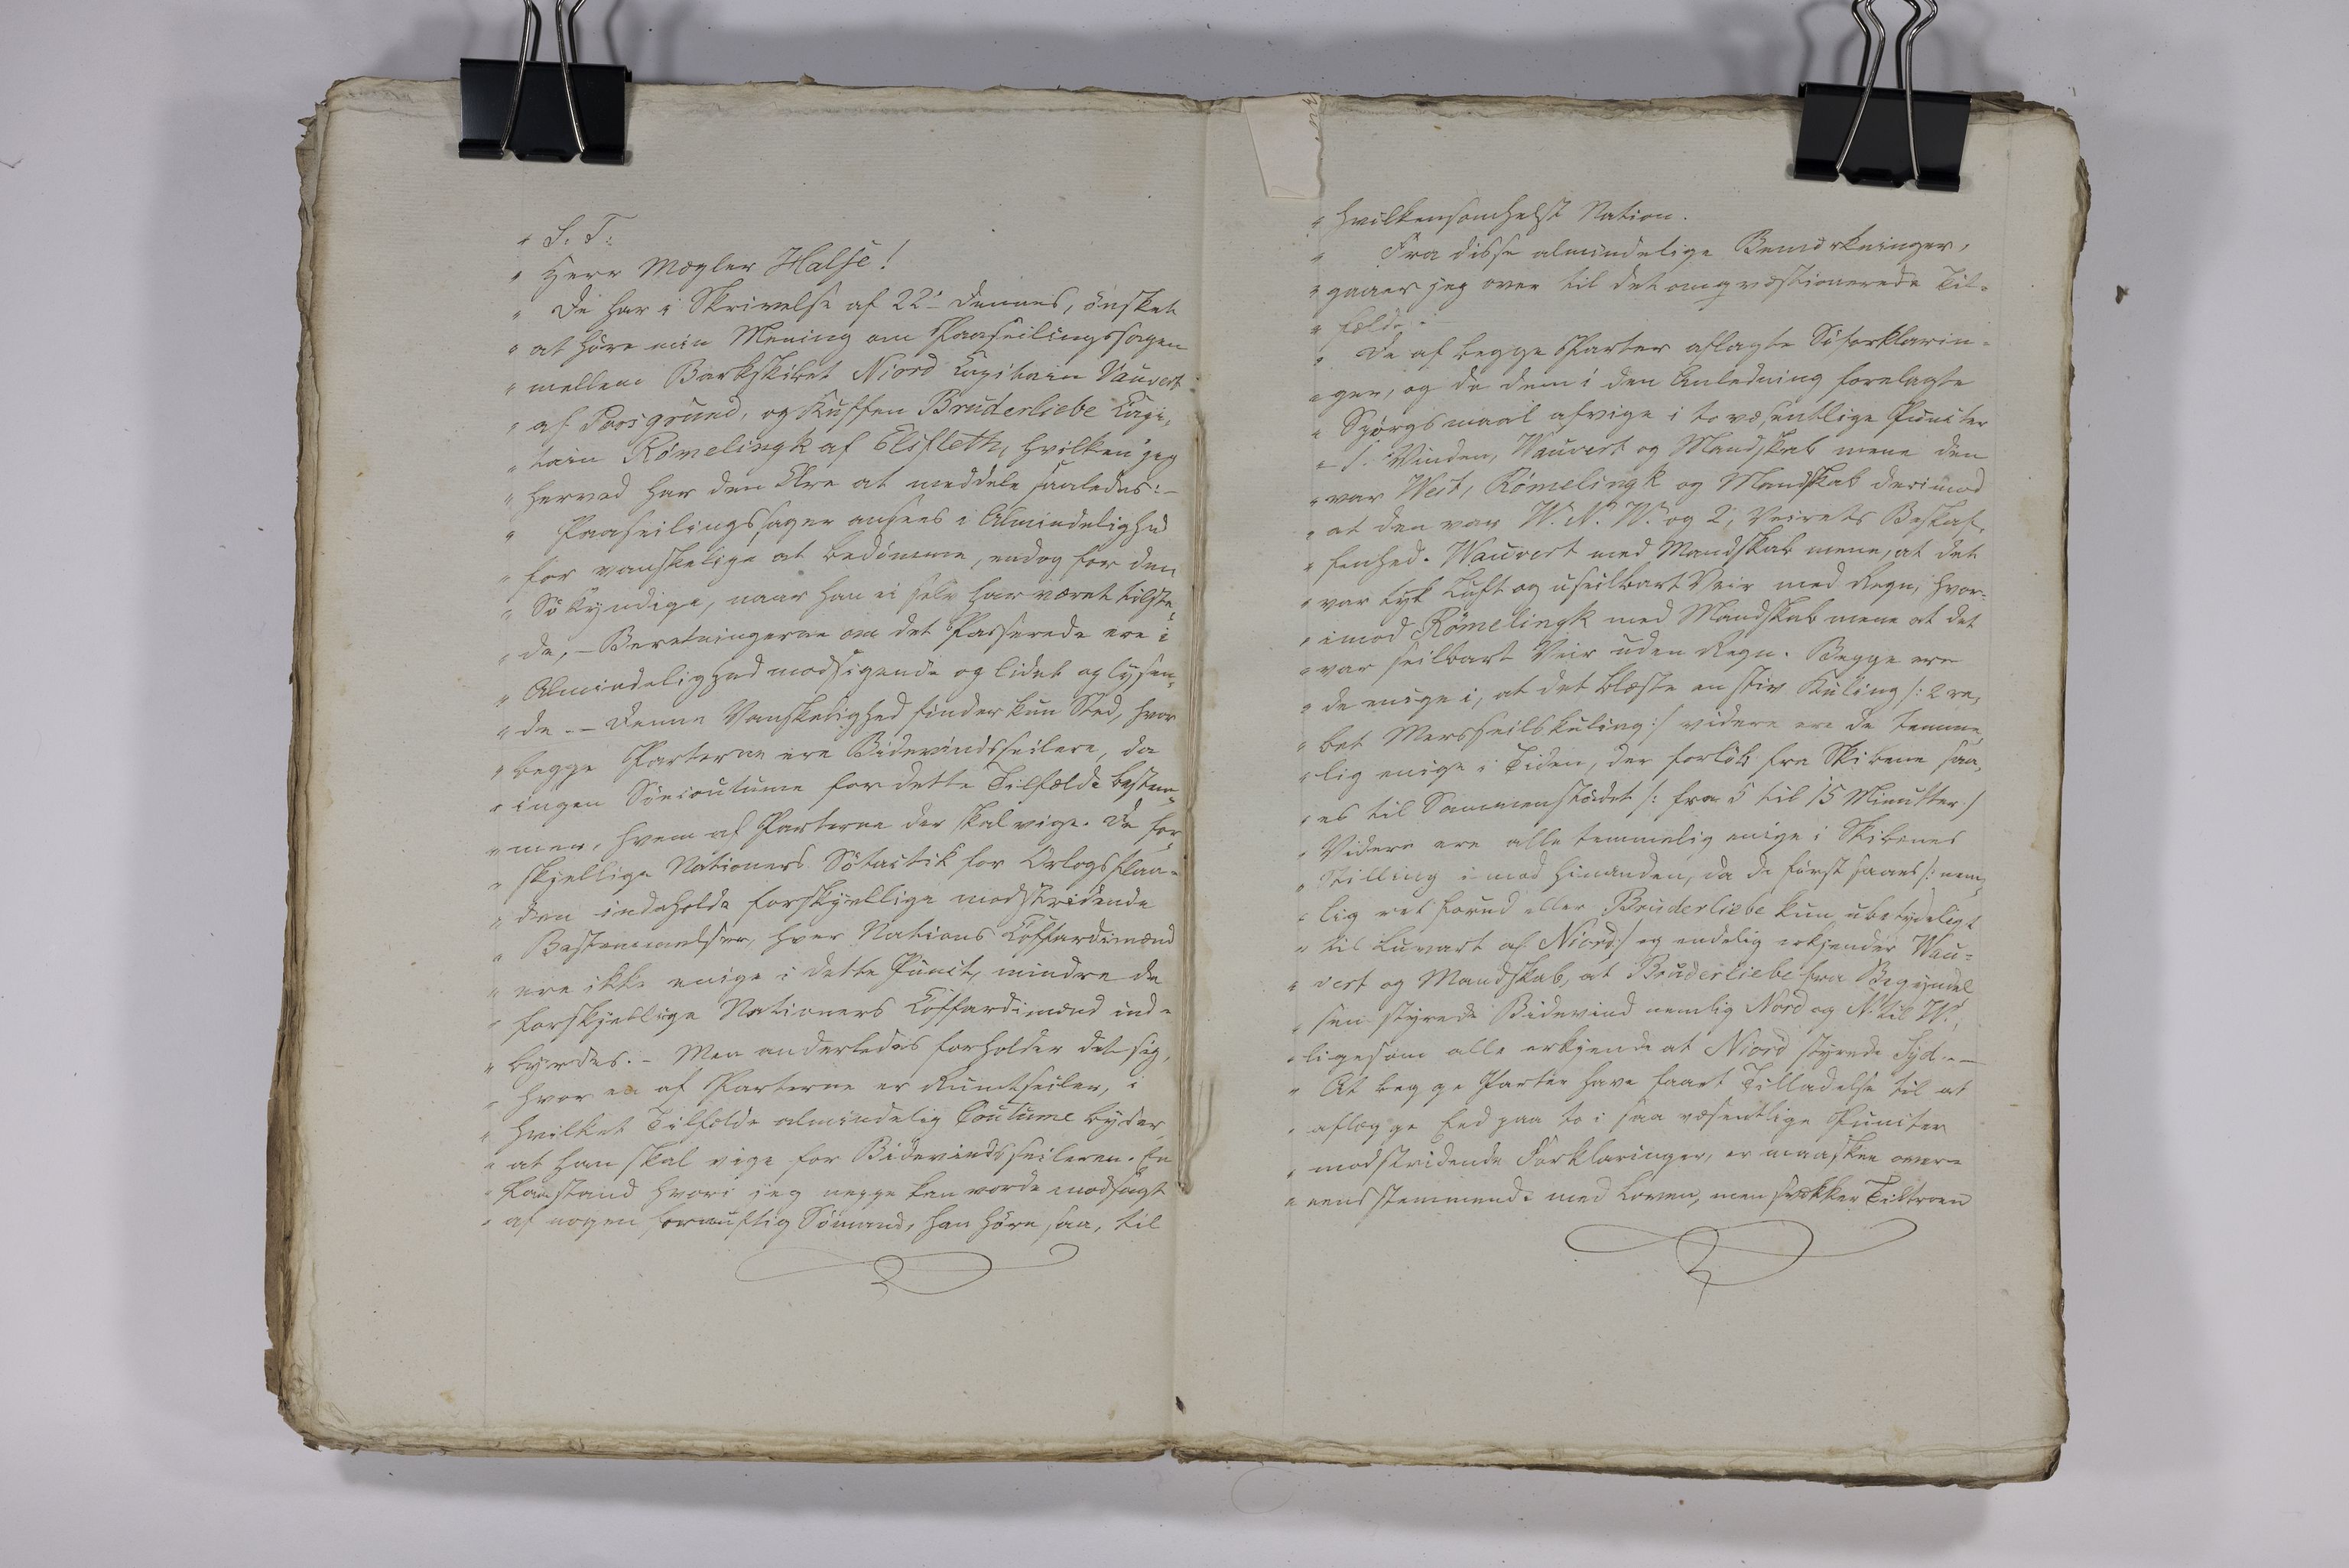 " S. T.
" Herr Mægler Halse!
" De har i Skrivelse af 22' dennes, ønsket
" at høre min Mening om Paaseilingssagen
" mellem Barkskibet Niord Capitain Vauvert
" af Porsgrund, og Kuffen Bruderliebe Capi-
" tain Rømelingk af Elsfleth, hvilken jeg
" herved har den Ære at meddele saaledes: -
" Paaseilingssager ansees i Almindelighed
" for vanskelige at bedømme, endog for den
" Søkyndige, naar han ei selv har været tilste-
" de, - Beretningerne om det Passerede ere i
" Almindelighed modsigende og lidet oplysen-
" de. - Denne Vanskelighed finder kun Sted, hvor
" begge Parterne ere Bidevindsseilere, da
" ingen Søcoutume for dette Tilfælde bestem-
" mer, hvem af Parterne der skal vige. De for-
" skjellige Nationers Søtactik for Orlogsflaa-
" den indeholde forskjellige modstridende
" Bestemmelser, hver Nations Coffardimænd
" ere ikke enige i dette Punct, mindre de
" forskjellige Nationers Coffardimænd ind-
" byrdes. - Men anderledes forholder det sig,
" hvor en af Parterne er Rumtseiler, i
" hvilket Tilfælde almindelig Coutume byder,
" at han skal vige for Bidevindsseileren. En
" Paastand hvori jeg neppe kan vorde modsagt
" af nogen fornuftig Sømand, han høre saa, til
" hvilkensomhelst Nation.
" Fra disse almindelige Bemærkninger,
" gaaer jeg over til det omqvæstionerede Til-
" fælde. -
" De af begge Parter aflagte Søforklarin-
" ger, og de dem i den Anledning forelagte
" Spørgsmaal afvige i to væsentlige Puncter
" 1. Vinden, Wauvert og Mandskab mene den
" var West, Rømelingk og Mandskab derimod
" at den var W. N. W. og 2, Veirets Beskaf-
" fenhed. Wauvert med Mandskab mene, at det
" var tyk Luft og useilbart Veir med Regn, hvor-
" imod Rømelingk med Mandskab mene at det
" var seilbart Veir uden Regn. Begge ere
" de enige i, at det blæste en stiv Kuling /: 2 re-
" bet Mersseilskuling :/ videre ere de temme-
" lig enige i Tiden, der forløb fra Skibene saa-
" es til Sammenstødet /: fra 5 til 15 Minutter :/
" Videre ere alle temmelig enige i Skibenes
" Stilling imod hinanden, da de først saaes /: nem-
" lig ret forud eller Bruderliebe kun ubetydeligt
" til Luvart af Niord :/ og endelig erkjender Wau-
" vert og Mandskab, at Bruderliebe fra Begyndel
" sen styrede Bidevind nemlig Nord og N. til W.,
" ligesom alle erkjende at Niord styrede Syd. -
" At begge Parter have faaet Tilladelse til at
" aflægge Eed paa to i saa væsentlige Puncter
" modstridende Forklaringer, er maaskee over-
" eensstemmende med Loven, men svækker Tiltroen